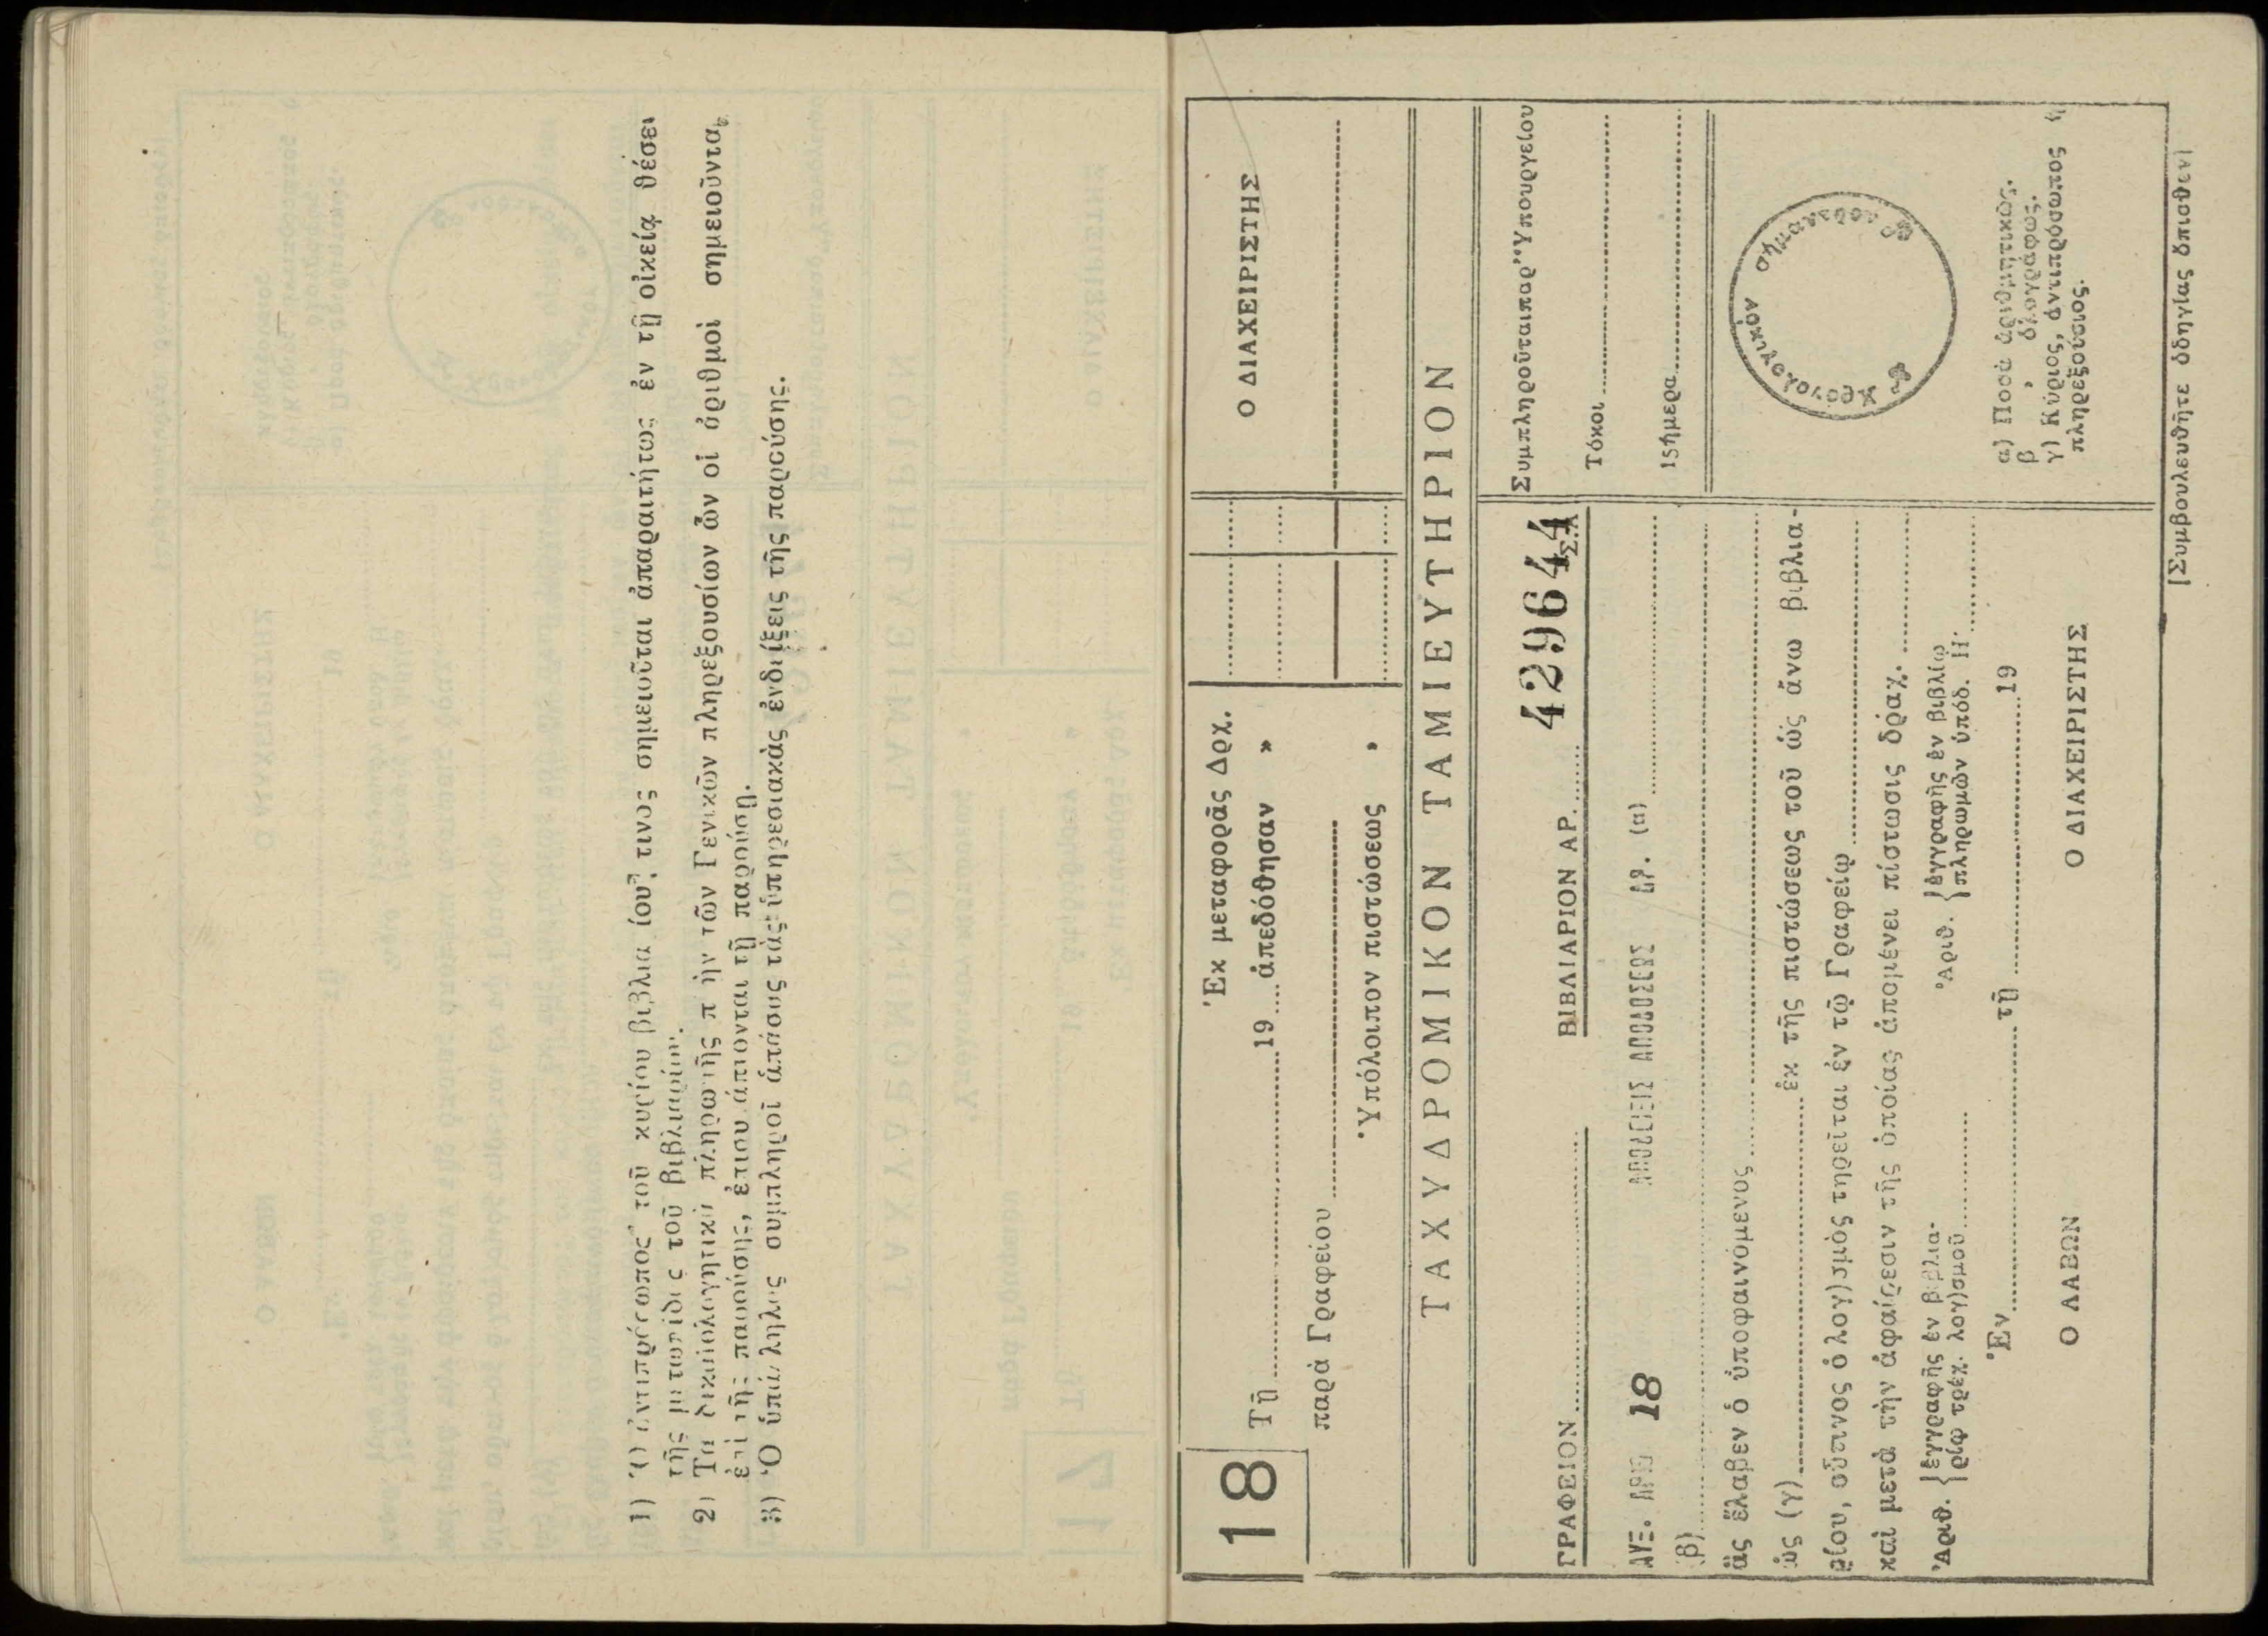 1) Ὁ ἀντιπρόσωπος τοῦ κυρίου βιβλια ίου τινος σημειοῦται ἀπαραιτήτως ἐν τῇ οἰκείᾳ θέσει
τῆς μερίδος τοῦ βιβλιαρίου.
2) Τὰ δικαιολογητικὰ πληρωμῆς π ὴν τῶν Γενικῶν πληρεξουσίων ὧν οἱ ἀριθμοὶ σημειοῦνται
ἐπὶ τῆς παρούσης, ἐπισυνάπτονται τῇ παρούσῃ.
3) Ὁ ὑπάλληλος συμπληροῖ ἁπάσας τὰς ὑπηρεσιακὰς ἐνδείξεις τῆς παρούσης.
18
Ἐκ μεταφορᾶς Δρχ.
Τῇ 19 ἀπεδόθησαν »
παρὰ Γραφείου
Ὑπόλοιπον πιστώσεως »
Ο ΔΙΑΧΕΙΡΙΣΤΗΣ
ΤΑΧΥΔΡΟΜΙΚΟΝ ΤΑΜΙΕΥΤΗΡΙΟΝ
ΓΡΑΦΕΙΟΝ ΒΙΒΛΙΑΡΙΟΝ ΑΡ. 429644
Σ.Α
ΑΥΞ. ΑΡΙΘ 18 ΑΠΟΔΕΙΞΙΣ ΑΠΟΔΟΣΕΩΣ ΔΡ. (α)
(β)
ἃς ἔλαβεν ὁ ὑποφαινόμενος
ὡς (γ) ἐκ τῆς πιστώσεως τοῦ ὡς ἄνω βιβλια-
ρίου, οὗτινος ὁ λογ)σμὸς τηρεῖται ἐν τῷ Γραφείῳ
καὶ μετὰ τὴν ἀφαίρεσιν τῆς ὁποίας ἀπομένει πίστωσις δραχ.
Ἀριθ. {ἐγγραφῆς ἐν βιβλια-
ρίῳ τρέχ. λογ)σμοῦ
Ἀριθ. {ἐγγραφῆς ἐν βιβλίῳ
πληρωμῶν ὑπόδ. Π'
Ἐν τῇ 19
Ο ΛΑΒΩΝ Ο ΔΙΑΧΕΙΡΙΣΤΗΣ
Συμπληροῦται παρ' Ὑπουργείου
Τόκοι
15ήμερα
Χρονολογικὸν σήμαντρον
α) Ποσὰ ἀριθμητικῶς.
β , ὁλογράφως.
γ) Κύριος, ἀντιπρόσωπος ἢ
πληρεξούσιος.
[Συμβουλευθῆτε ὁδηγίας ὄπισθεν]